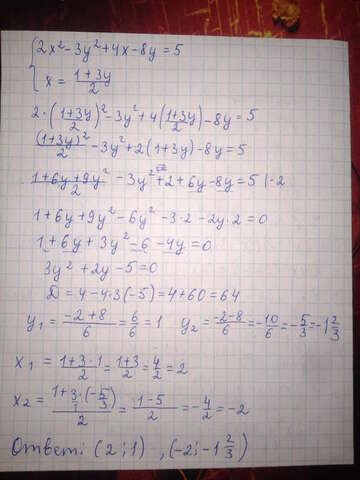 {2x²-3y²+4x-8y=5
{x = (1+3y)/2
2·((1+3y)/2)²-3y²+4((1+3y)/2)-8y=5
(1+3y)²/2 -3y²+2(1+3y)-8y=5
(1+6y+9y²)/2 -3y²+2+6y-8y=5 |·2
1+6y+9y²-6y²-3·2-2y·2=0
1+6y+3y²-6-4y=0
3y²+2y-5=0
D=4-4·3(-5)=4+60=64
y₁=(-2+8)/6=6/6=1 y₂=(-2-8)/6=-10/6=-5/3=-1 2/3
x₁=(1+3·1)/2=(1+3)/2=4/2=2
x₂=(1+3/1·(-5/3))/2=(1-5)/2=-4/2=-2
Ответ: (2;1), (-2;-1 2/3)